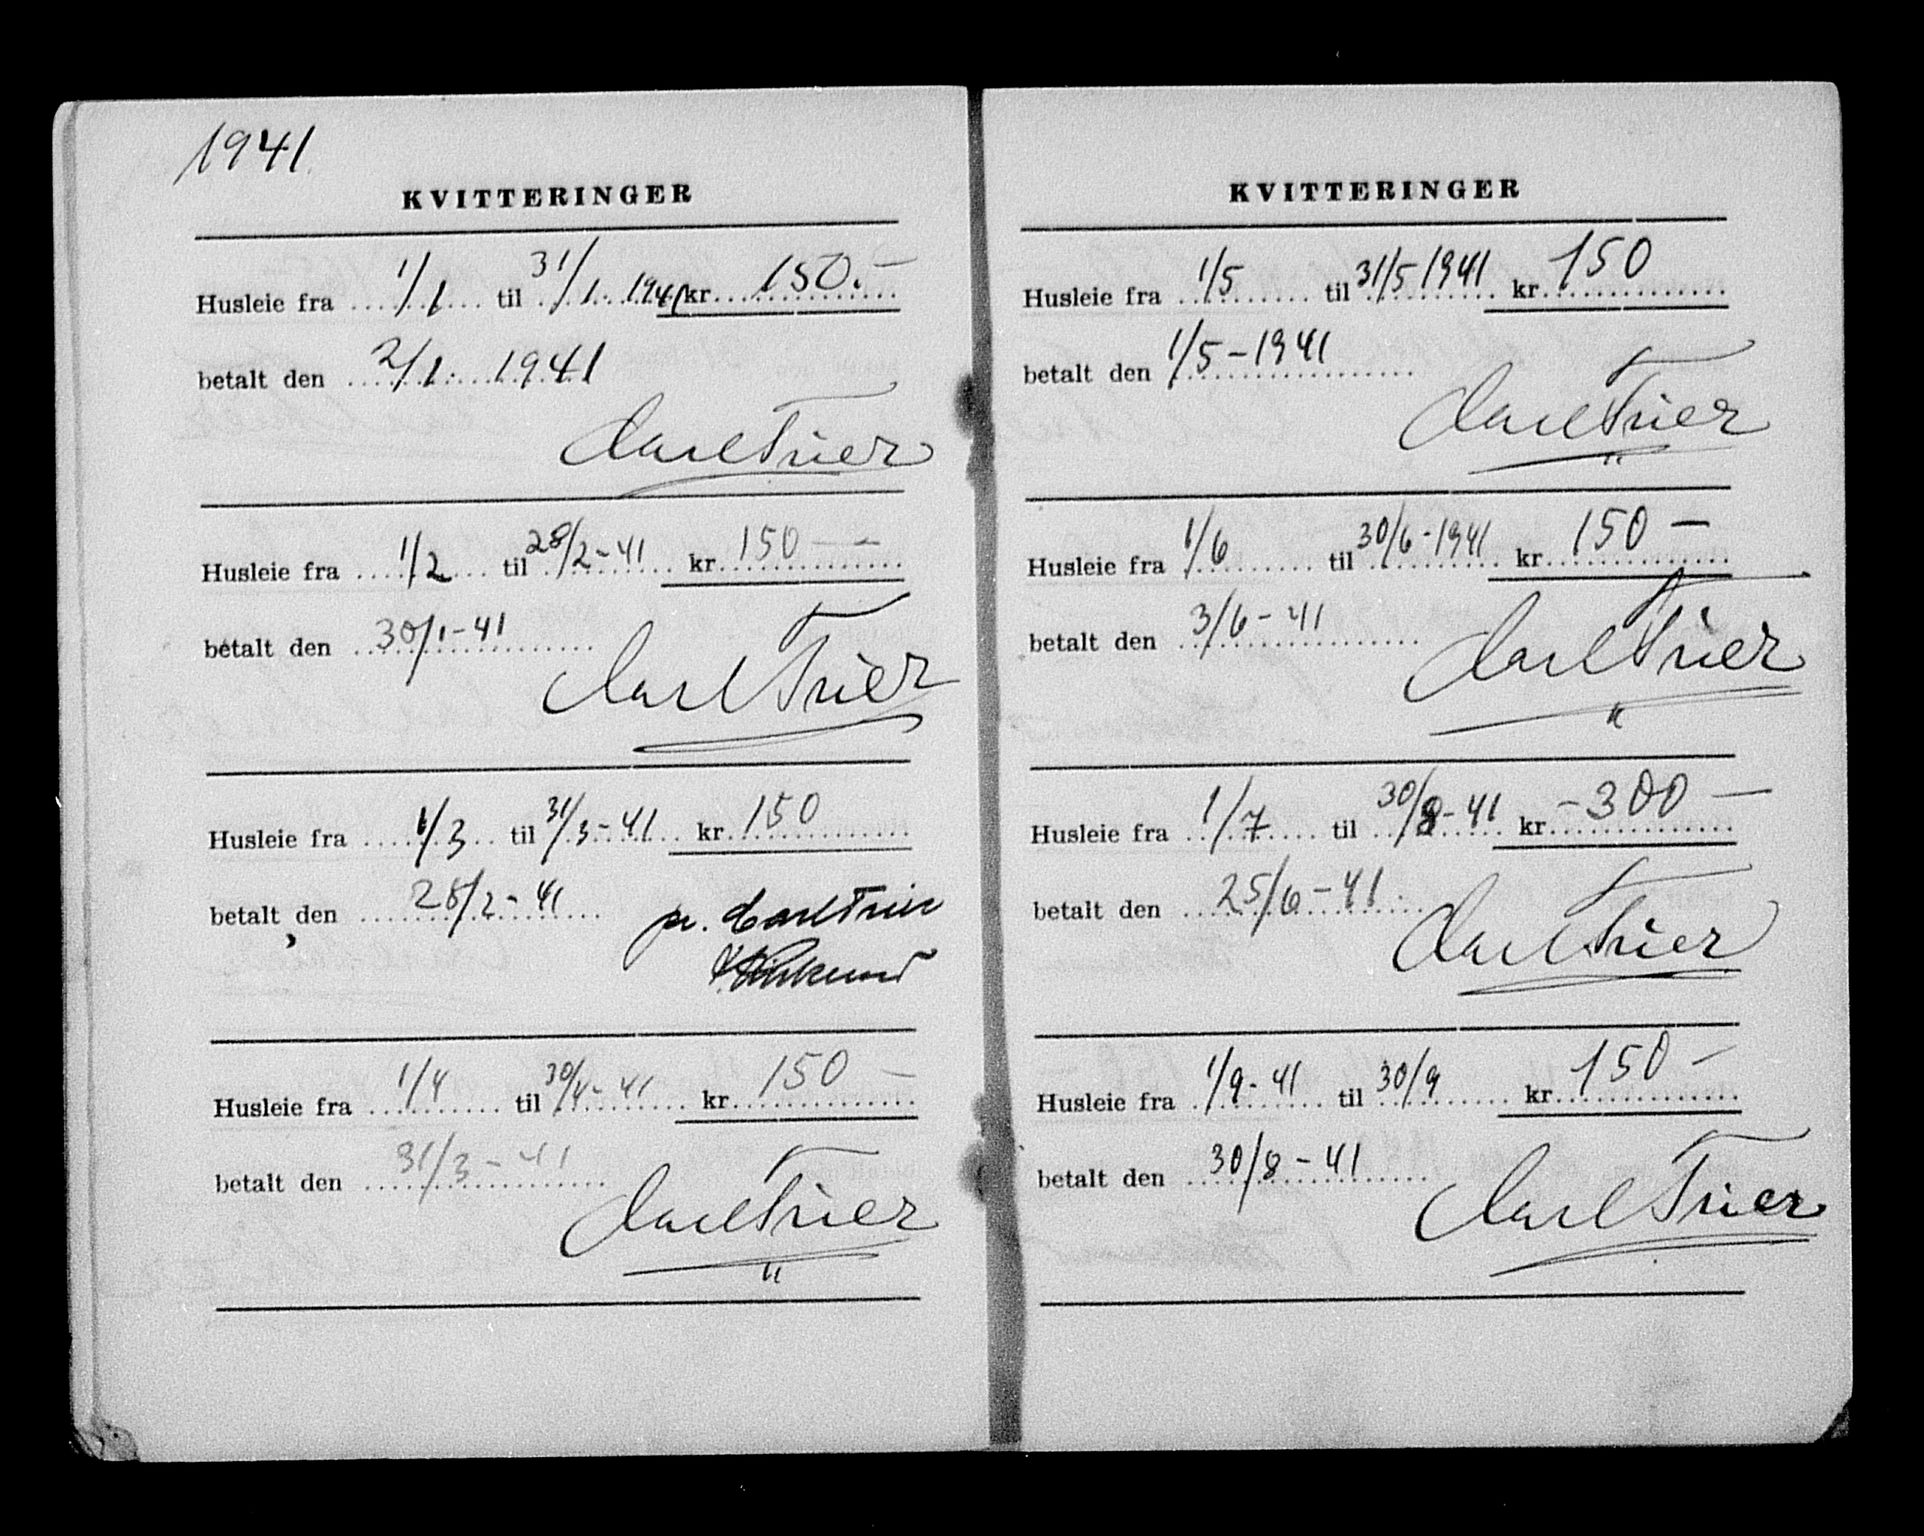 1941
KVITTERINGER
Husleie fra 1/1 til 31/1 1941 kr 150.—
betalt den 2/1. 1941
Carl Trier
Husleie fra 1/2 til 28/2-41 kr 150 —
betalt den 30/1-41
Carl Trier
Husleie fra 1/3 til 31/3-41 kr 150
betalt den 28/2-41 pr. Carl Trier
Husleie fra 1/4 til 30/4-41 kr 150 —
betalt den 31/3-41
Carl Trier
KVITTERINGER
Husleie fra 1/5 til 31/5 1941 kr 150
betalt den 1/5-1941
Carl Trier
Husleie fra 1/6 til 30/6-1941 kr 150 —
betalt den 3/6-41
Carl Trier
Husleie fra 1/7 til 30/8-41 kr -300 —
betalt den 25/6-41
Carl Trier
Husleie fra 1/9-41 til 30/9 kr 150 —
betalt den 30/8-41
Carl Trier